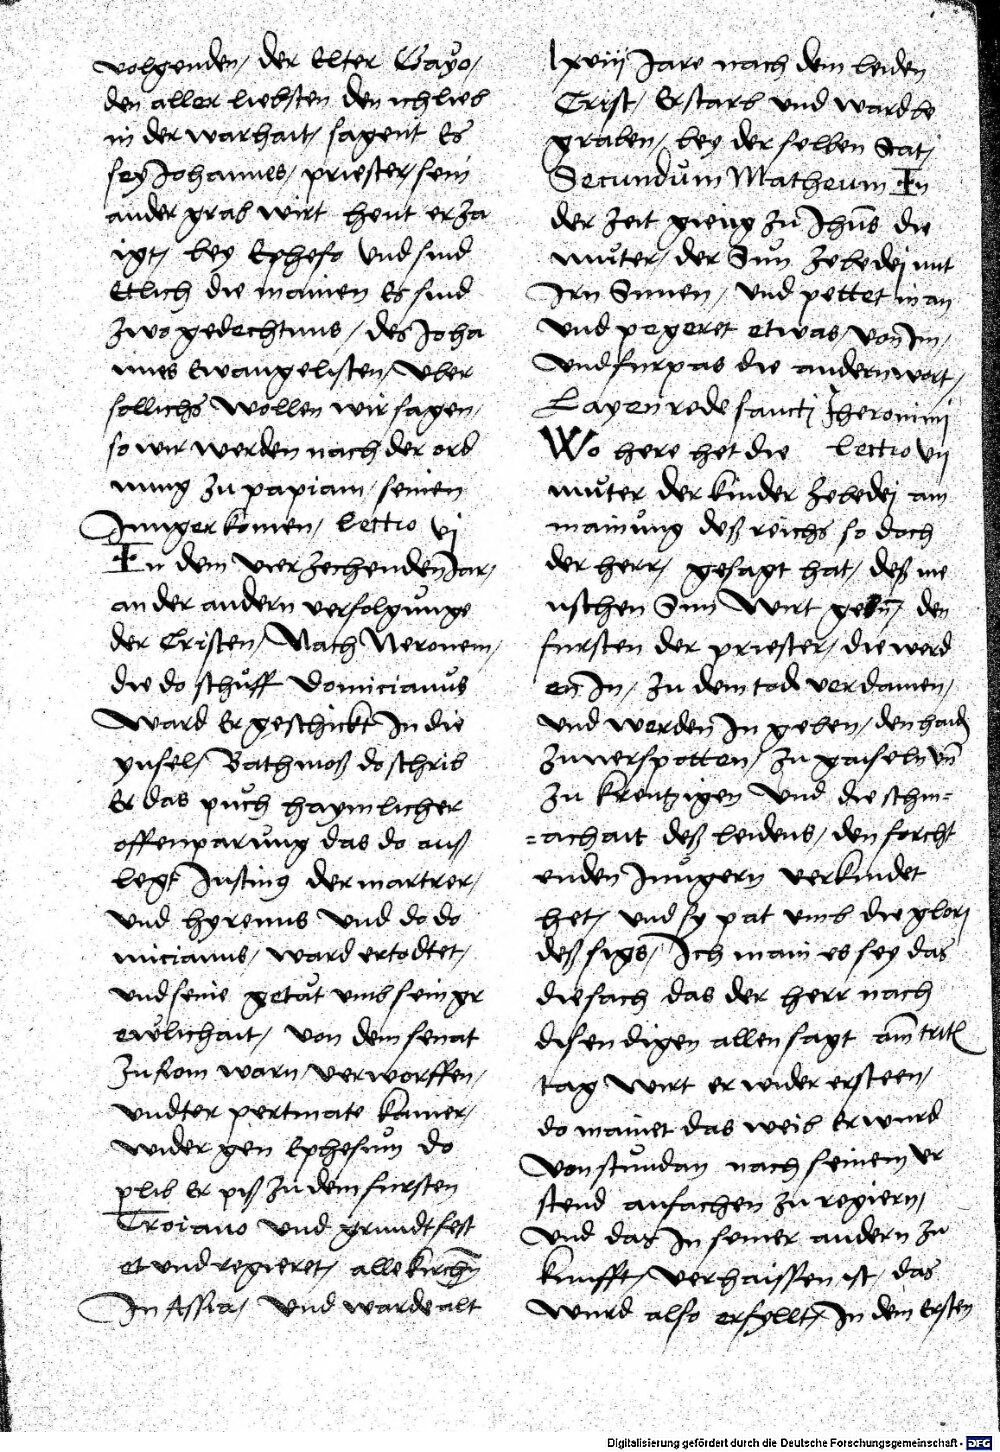 volgenden, der Elter Gayo,
den aller liebsten den ich lieb
in der warhait, sagent Es
sey Johannes, priester, sein
ander grab wirt heut erza
igt, bey Epheso vnd sind
Ettlich die mainen Es sind
zwo gedechtnus, des Joha
nnes Ewangelisten, Vber
sollichs wollen wir sagen,
so wir werden nach der ord
nung zu papiam, seinen
Junger komen, Lectio vj
In dem vierzechenden Jar,
an der andern verfolgunge
der Cristen, Nach Neronem,
die do schuff Domicianus
Ward Er geschickt In die
ynsel, Bathmoß do schrib
Er das puch haymlicher
offenparung das do auß
legt Justinus der martrer,
vnd hyrenus vnd do do
micianus, ward ertodtet,
vnd seine getät vmb sein gr
ewlichait, von dem senat
zu Rom warn, verworffen,
vndter pertinate kamer,
wider gen Ephesum do
plib Er piß zu dem fursten
Troiano vnd grundtfest
et vnd regieret, alle kirchn
In Assia, vnd warde alt
lxviij Jare nach dem leiden
Crist, Erstarb vnd ward be
graben, bey der selben Stat,
Secundum Matheum In
der zeit gieng zu Jhus die
muter, der Sun zebedej mit
Irn Sunen, vnd pettet in an
vnd pegeret etwas, von Im,
vnd furpas die andern wort,
Layen rede sancti Jheronimj
Wo here het die Lectio vij
muter der kinder zebedej am
mainung deß reichs so doch
der herr, gesagt hat, deß me
nschen Sun Wirt geben, den
fursten der priester, die werd
en In, zu dem tod verdamen,
vnd werden In geben, den haiden
zuverspotten, zu gaiseln vn
zu kreutzigen vnd die schm=
=achait deß leidens, den forcht
enden Jungern verkundet
het, vnd sy pat vmb die glorj
deß sigs, Ich main es sey das
die sach das der herr nach
disen digen allen sagt am tritt
tag wirt er wider ersteen,
do mainet das weib Er wurd
von stundan nach seinem er
stend anfachen zu regiern,
vnd das In seiner andern zu
kunfft, verhaissen ist, das
wurd also erfyllt, In dem Ersten
Digitalisierung gefördert durch die Deutsche Forschungsgemeinschaft - DFG